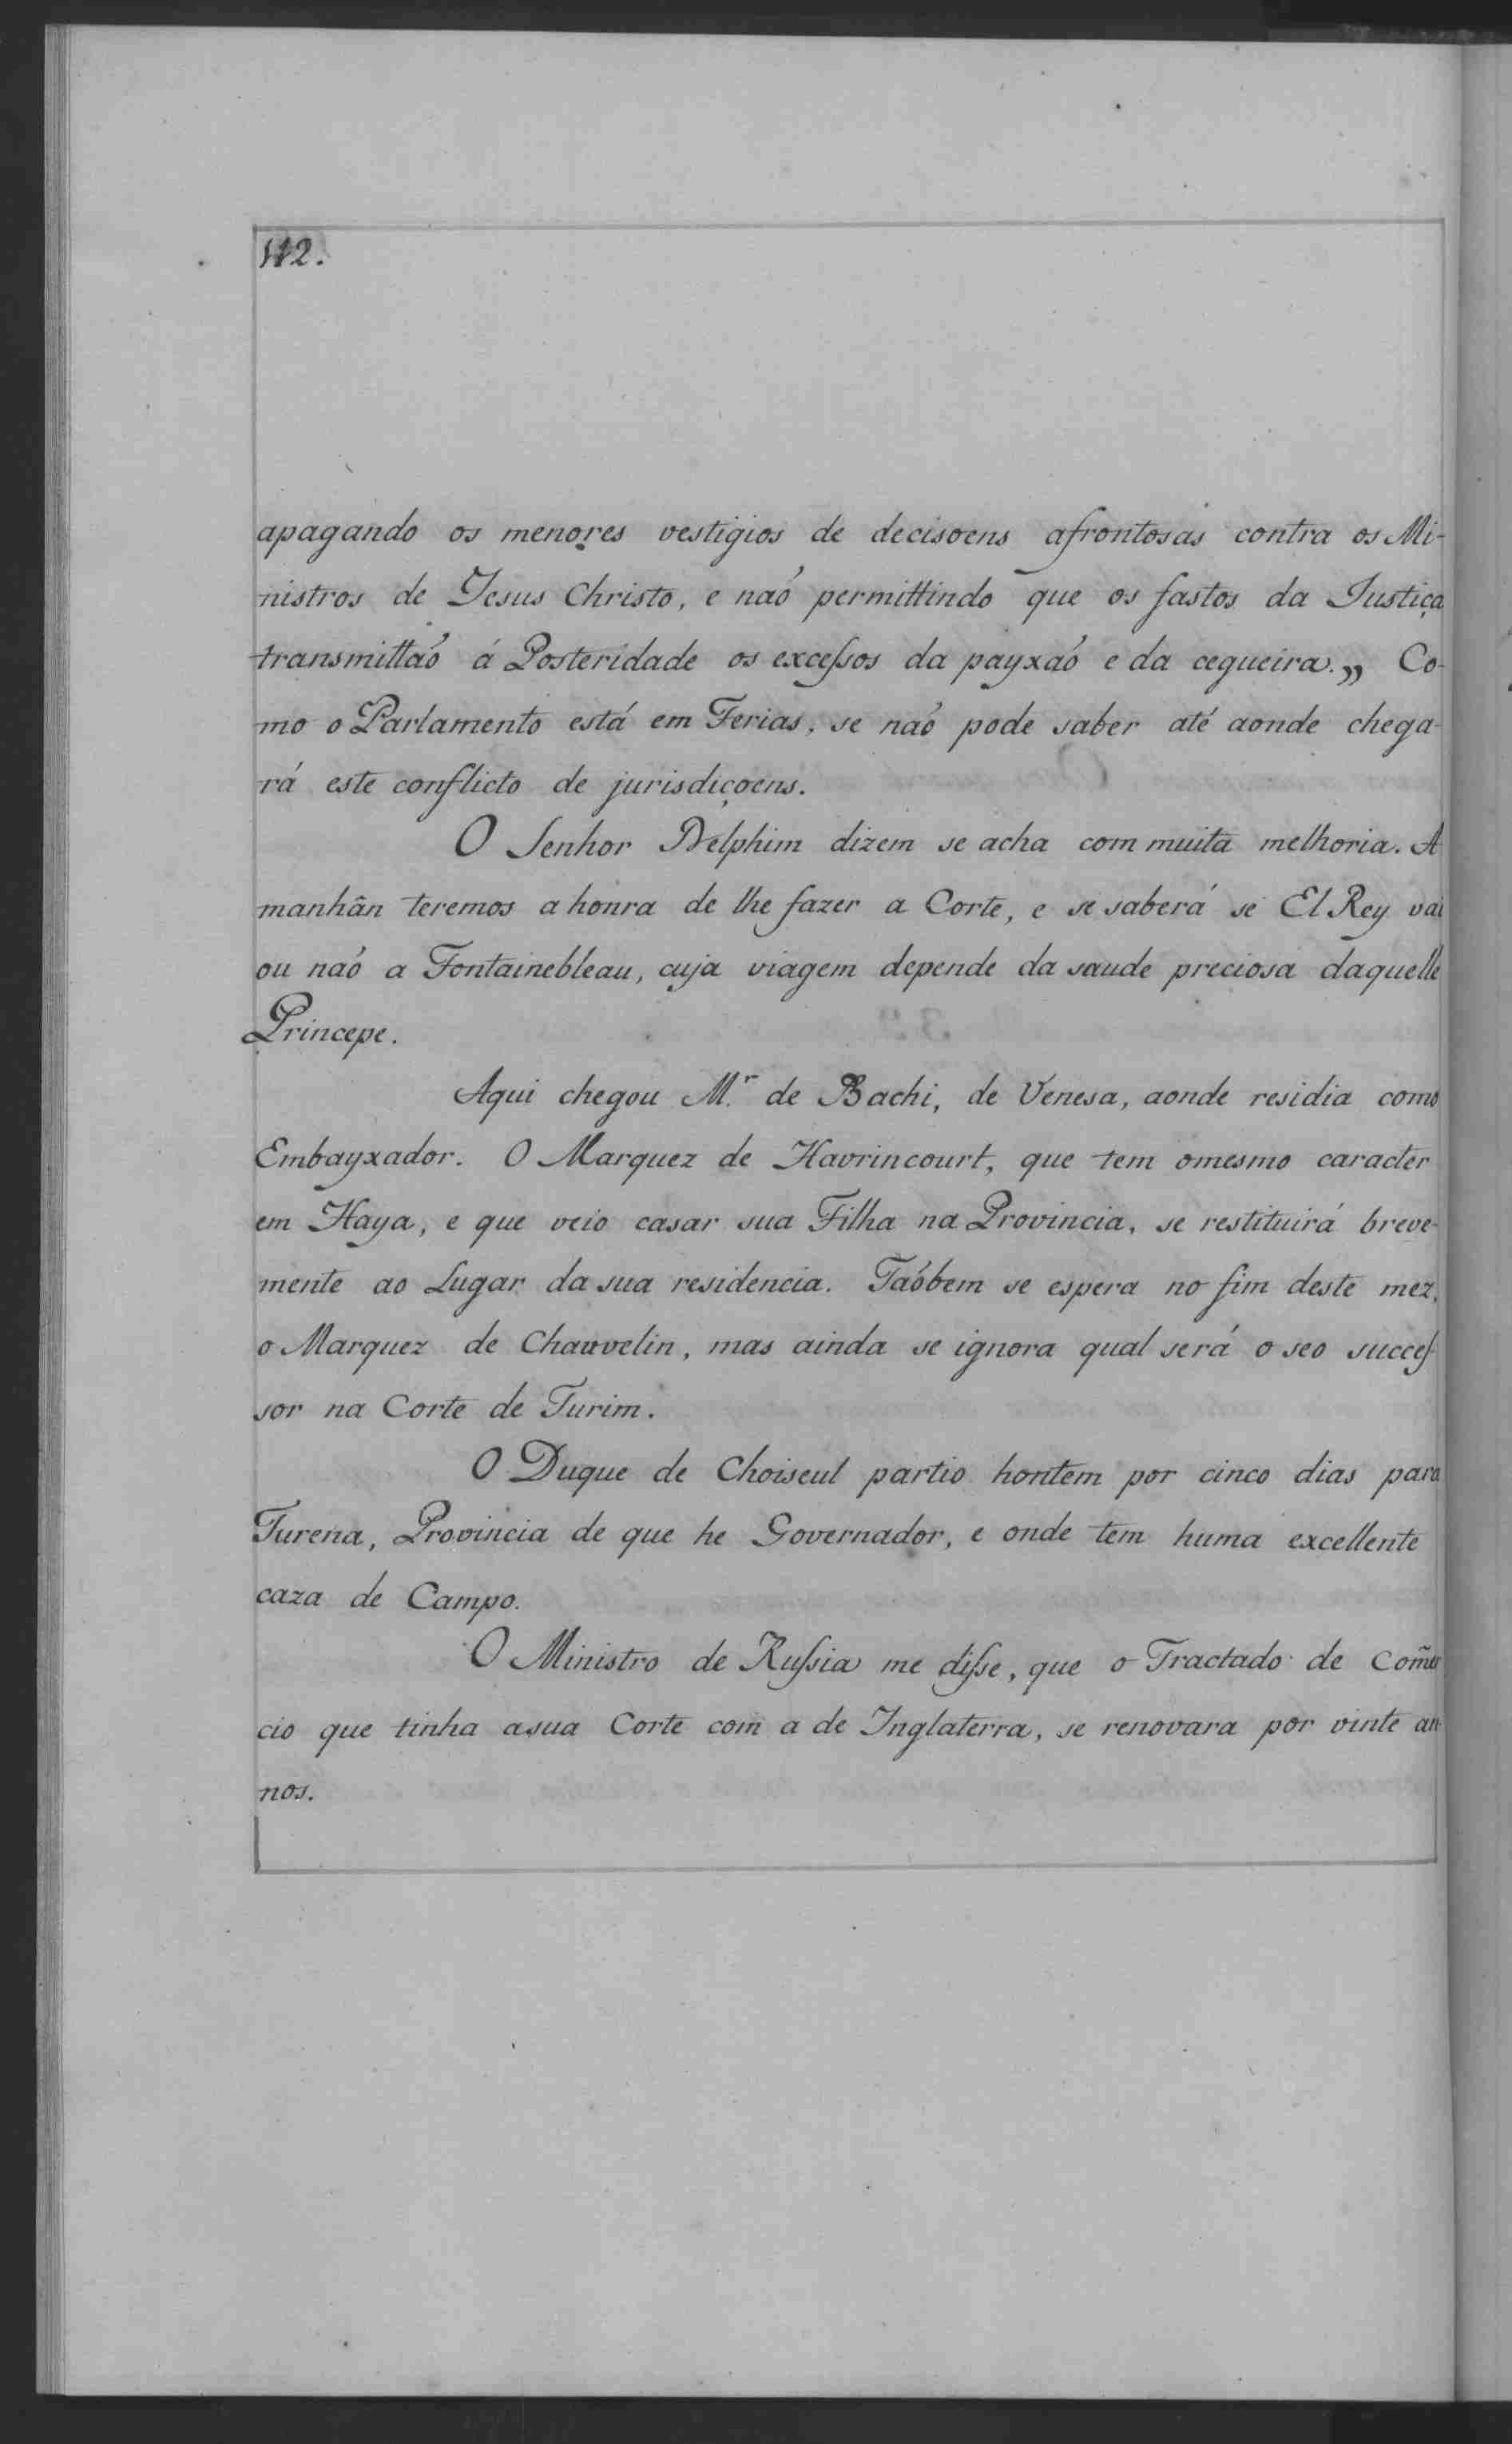 112.
apagando os menores vestigios de decisoens afrontosas contra os Mi-
nistros de Jesus Christo, e naõ permittindo que os fastos da Justiça
transmittaõ á Posteridade os excessos da payxaõ e da cegueira.„ Co-
mo o Parlamento está em Ferias, se naõ pode saber até aonde chega-
rá este conflicto de jurisdiçoens.
O Senhor Delphim dizem se acha com muita melhoria. A
manhân teremos a honra de lhe fazer a Corte, e se saberá se El Rey vai
ou naõ a Fontainebleau, cuja viagem depende da saude preciosa daquelle
Princepe.
Aqui chegou M.r de Bachi, de Venesa, aonde residia como
Embayxador. O Marquez de Havrincourt, que tem omesmo caracter
em Haya, e que veio casar sua Filha na Provincia, se restituirá breve-
mente ao Lugar da sua residencia. Taõbem se espera no fim deste mez,
o Marquez de Chauvelin, mas ainda se ignora qual será o seo succes-
sor na Corte de Turim.
O Duque de Choiseul partio hontem por cinco dias para
Turena, Provincia de que he Governador, e onde tem huma excellente
caza de Campo.
O Ministro de Russia me disse, que o Tractado de Com̃er
cio que tinha asua Corte com a de Inglaterra, se renovara por vinte an-
nos.